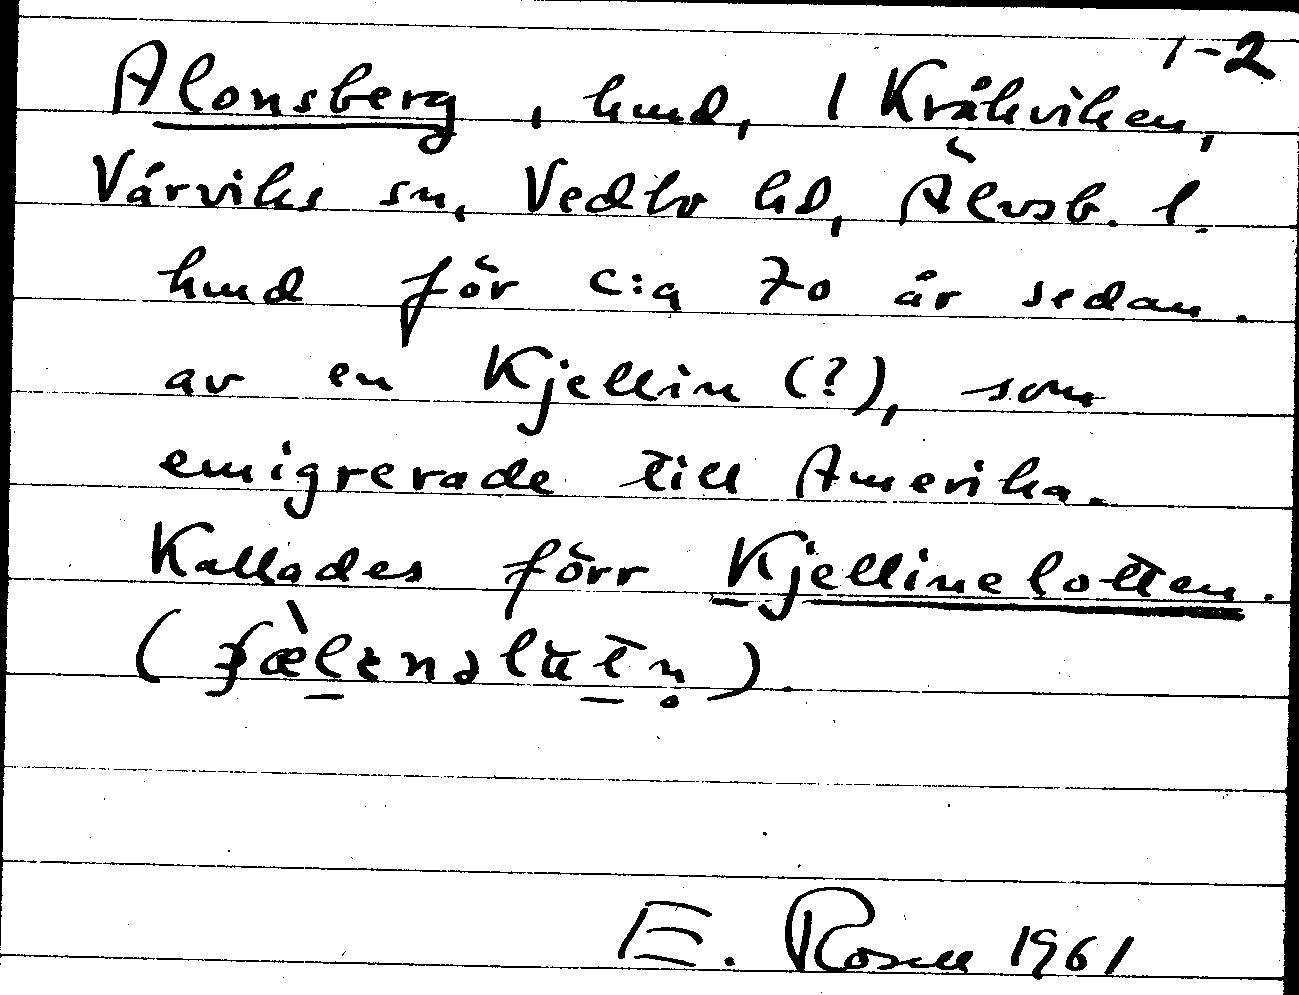 1-2
Alonsberg, hmd, 1 Kråkviken,
Vårviks sn, Vedbo hd, Älvsb. l.
hmd för c:a 70 år sedan.
av en Kjellin (?), som
emigrerade till Amerika.
Kallades förr Kjellinelotten.
E. Rosell 1961